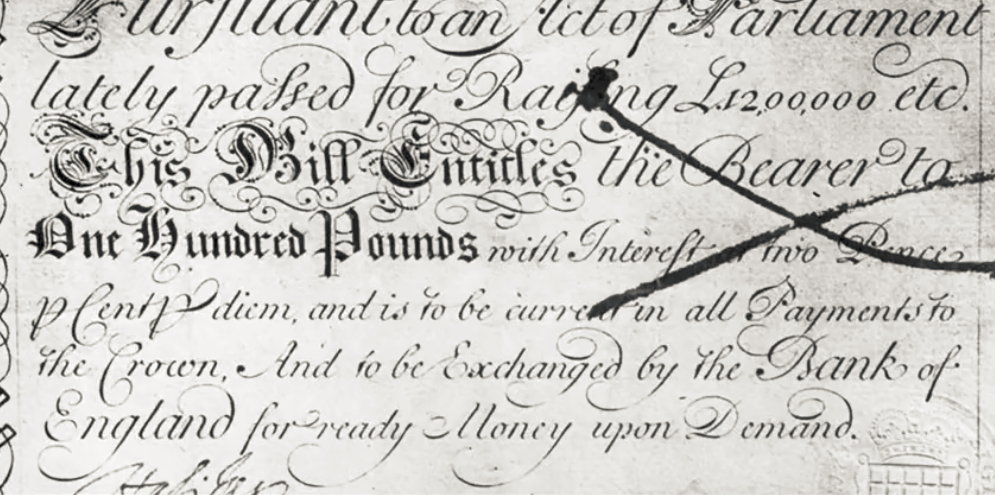 Pursuant to an Act of Parliament
lately passed for Raising £12,00,000 etc.
This Bill Entitles the Bearer to
One Hundred Pounds with Interest at two Pence
p Cent p diem, and is to be current in all Payments to
the Crown, And to be Exchanged by the Bank of
England for ready Money upon Demand.
Halifax